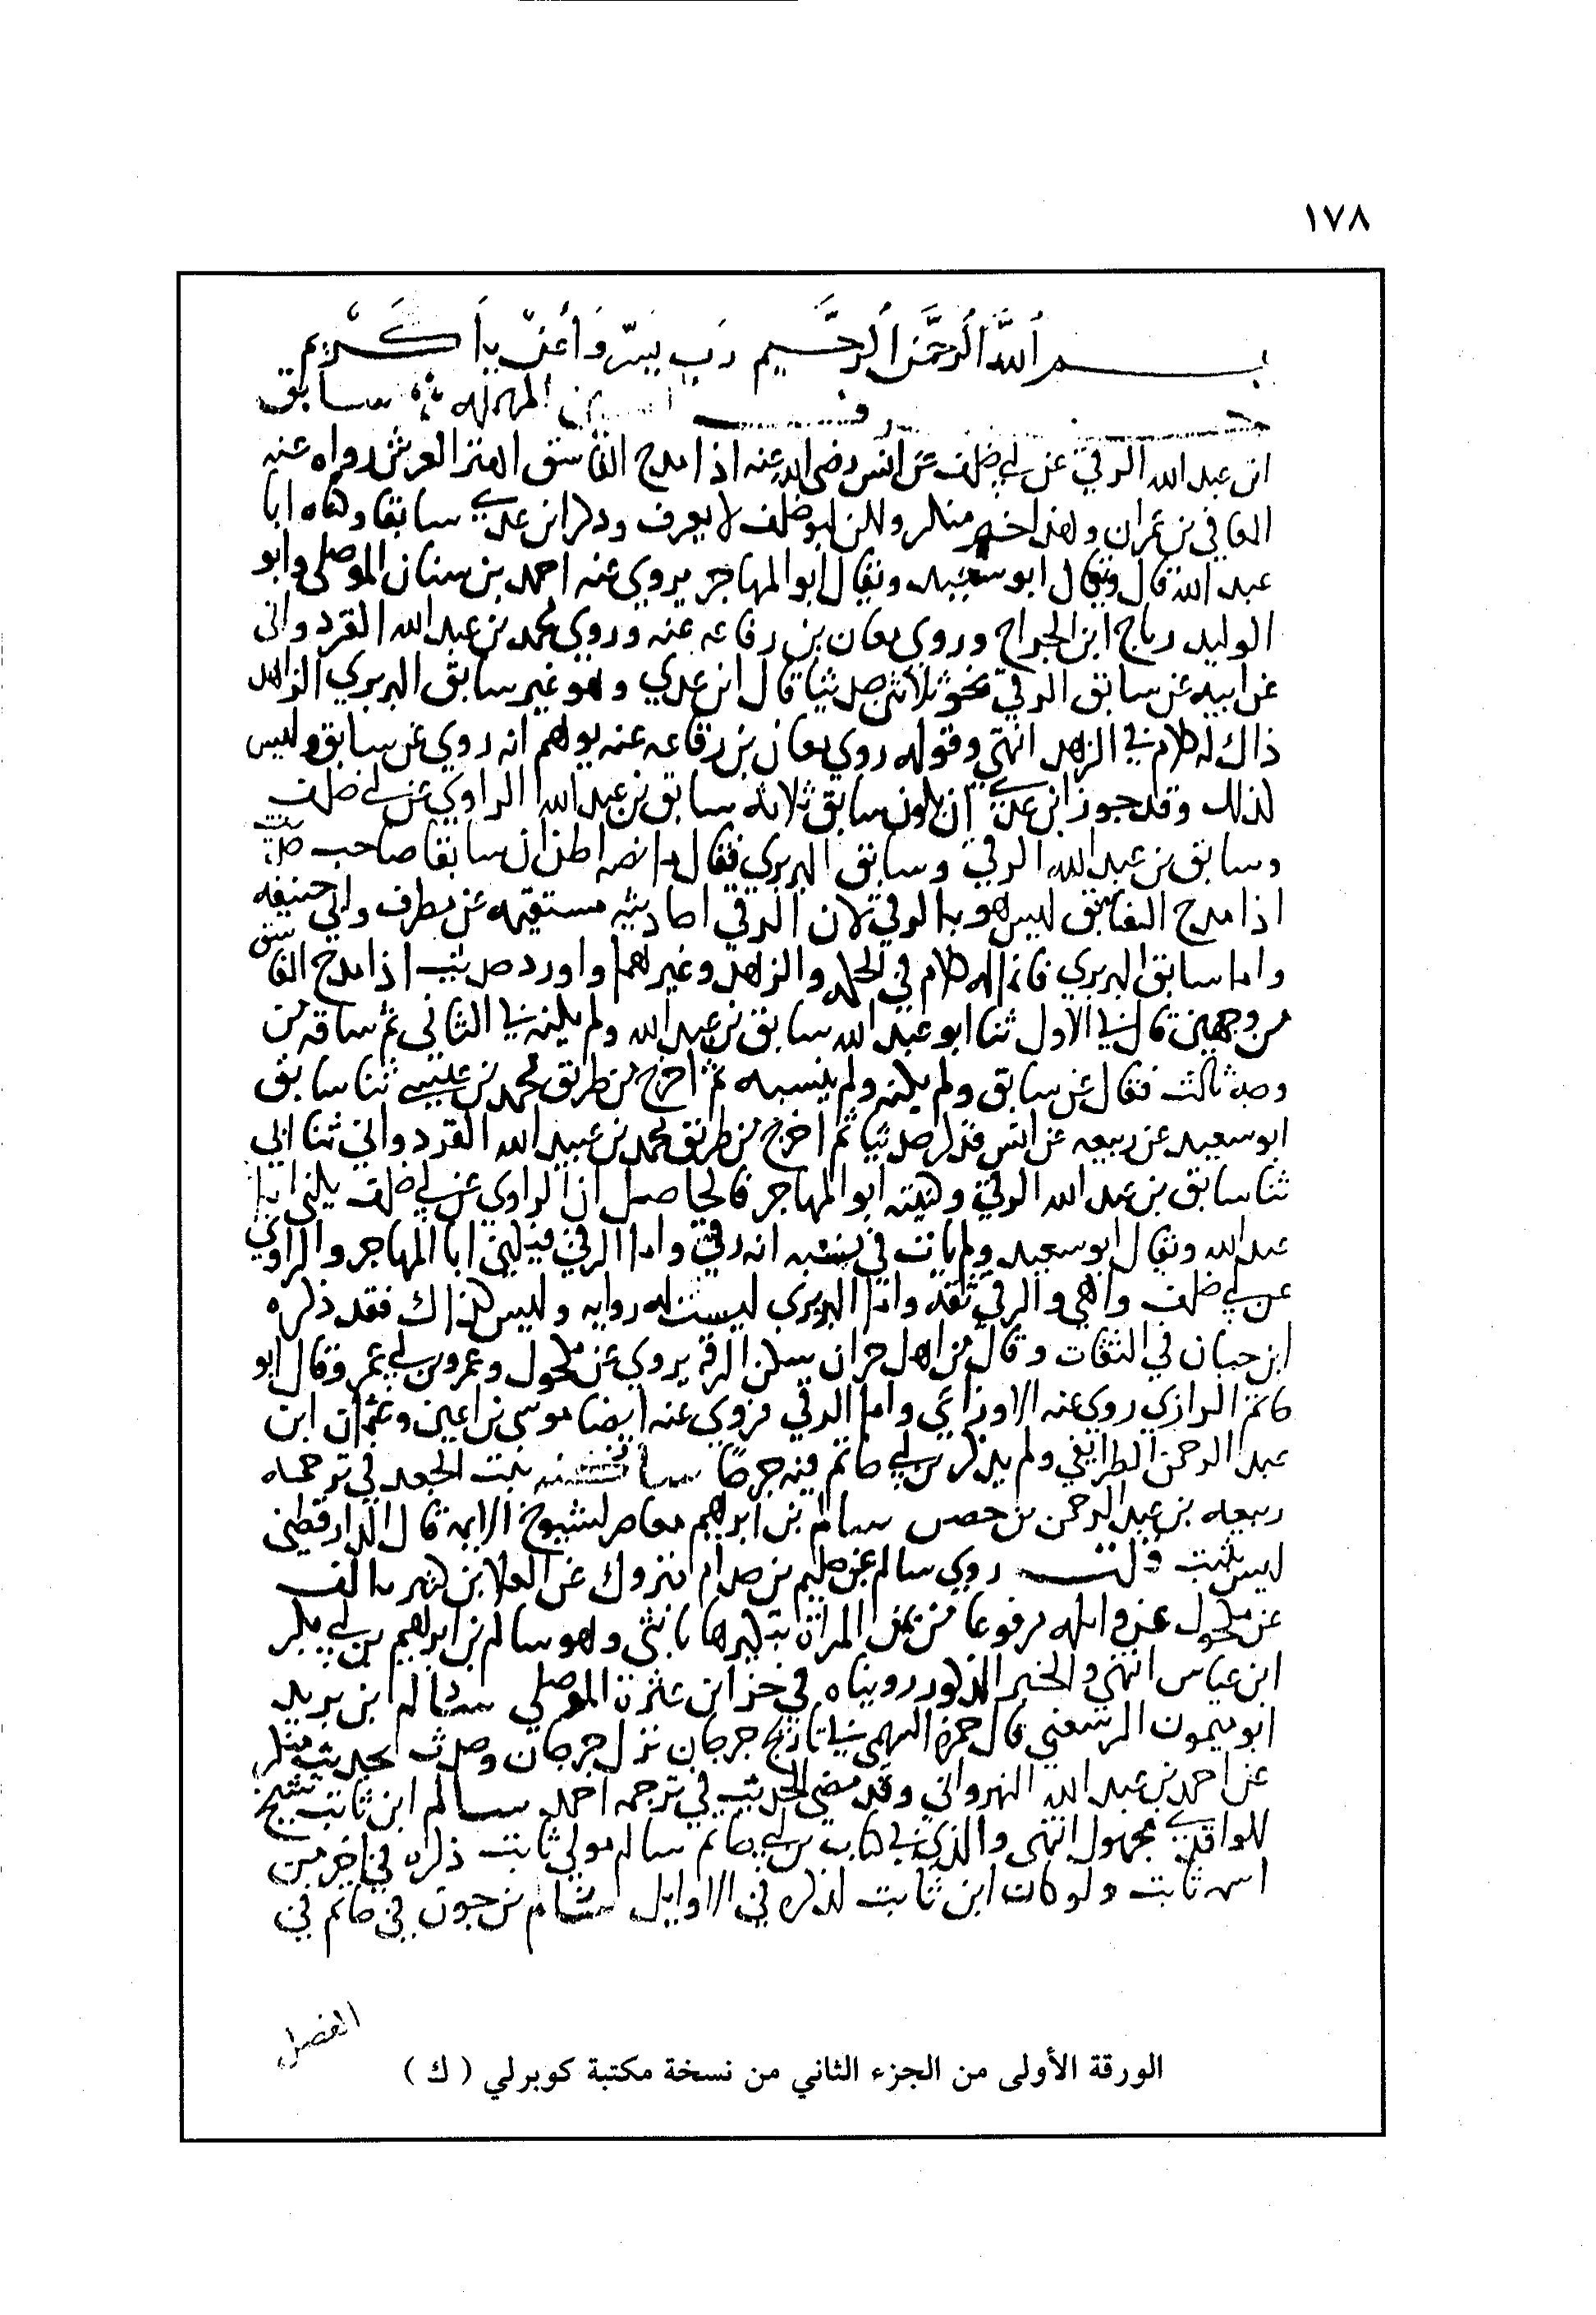 ١٧٨
بسم الله الرحمن الرحيم رب يسر وأعن يا كريم
حرف السين المهملة سابق
ابن عبد الله الرقي عن ابي خلف عن انس رضي الله عنه اذا مدح الفاسق اهتز العرش رواه عنه
المعافى بن عمران وهذا خبر منكر ولكن ابو خلف لا يعرف وذكر ابن عدي سابقا وكناه ابا
عبد الله قال ويقال ابو سعيد ويقال ابو المهاجر يروي عنه احمد بن سنان الموصلي وابو
الوليد رباح ابن الجراح وروى معان بن رفاعه عنه وروى محمد بن عبيد الله القردواني
عن ابيه عن سابق الرقي نحو ثلاثين حديثا قال ابن عدي وهو غير سابق البربري الزاهد
ذاك له كلام في الزهد انتهى وقوله روى معان بن رفاعه عنه يوهم انه روى عن سابق وليس
كذلك وقد جوز ابن عدي ان يكون سابق ثلاثة سابق بن عبد الله الراوي عن ابي خلف
وسابق بن عبد الله الرقي وسابق البربري فقال ما نصه اظن ان سابقا صاحب حديث
اذا مدح الفاسق ليس هو بالرقي لان الرقي احاديثه مستقيمه عن مطرف وابي حنيفه
واما سابق البربري فانما له كلام في الحكمة والزهد وغيرهما واورد حديث اذا مدح الفاسق
من وجهين قال في الاول ثنا ابو عبد الله سابق بن عبد الله ولم يكنه في الثاني ثم ساقه من
وجه ثالث فقال عن سابق ولم يكنه ولم ينسبه ثم اخرج من طريق محمد بن عيسى ثنا سابق
ابو سعيد عن ربيعه عن انس فذكر حديثا ثم اخرج من طريق محمد بن عبيد الله القردواني ثنا ابي
ثنا سابق بن عبد الله الرقي وكنيته ابو المهاجر فالحاصل ان الراوي عن ابي خلف يكنى ابا
عبد الله ويقال ابو سعيد ولم يات في نسبه انه رقي واما الرقي فيكنى ابا المهاجر والراوي
عن ابي خلف واهي والرقي ثقه واما البربري ليست له روايه وليس كذاك فقد ذكره
ابن حبان في الثقات وقال من اهل حران سكن الرقة يروي عن مكحول وعمرو بن ابي عمرو قال ابو
حاتم الرازي روى عنه الاوزاعي واما الرقي فروى عنه ايضا موسى بن اعين وعثمان ابن
عبد الرحمن الطرايفي ولم يذكر بن ابي حاتم فيه جرحا ساكنه بنت الجعد في ترجمه
ربيعه بن عبد الرحمن بن حصن سالم بن ابراهيم معاصر لشيوخ الايمه قال الدارقطني
ليس بثبت قلت روى سالم عن حكيم بن حزام متروك عن العلا بن كثير تالف
عن مكحول عن واثله مرفوعا من يمن المراة تبكيرها بانثى وهو سالم بن ابراهيم بن ابي بكر
ابن عياس انتهى والخبر المذكور رويناه في جز ابن عثرة الموصلي سالم ابن بريد
ابو ميمون الرسعني قال حمزة السهمي في تاريخ جرجان نزل جرجان وحدث بحديث منكر
عن احمد بن عبد الله النهرواني وقد مضى الحديث في ترجمه احمد سالم ابن ثابت شيخ
للواقدي مجهول انتهى والذي في كتاب بن ابي حاتم سالم مولى ثابت ذكره في اخر من
اسمه ثابت ولو كان ابن ثابت لذكره في الاوايل سالم بن جون في حاتم في
الفضل
الورقة الأولى من الجزء الثاني من نسخة مكتبة كوبرلي ( ك )